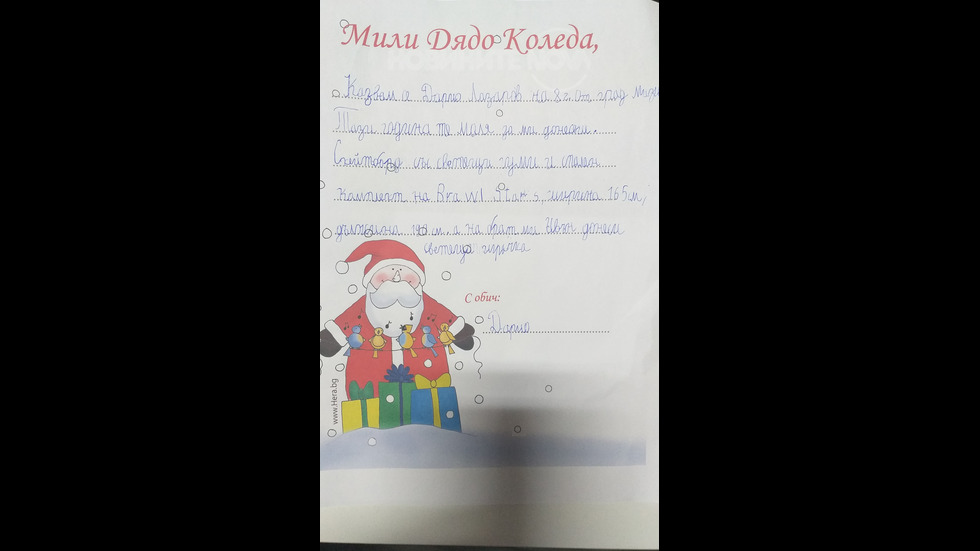 Мили Дядо Коледа,
Казвам се Дарио Лазаров на 8г. От град
Тази година те моля да ми донесеш.
Скейтборд със светещи гуми и спален
комплект на Brawl Stars, ширина 165м,
дължина м. а на брат ми Иван донеси
светеща играчка
С обич:
Дарио
www.Hera.bg